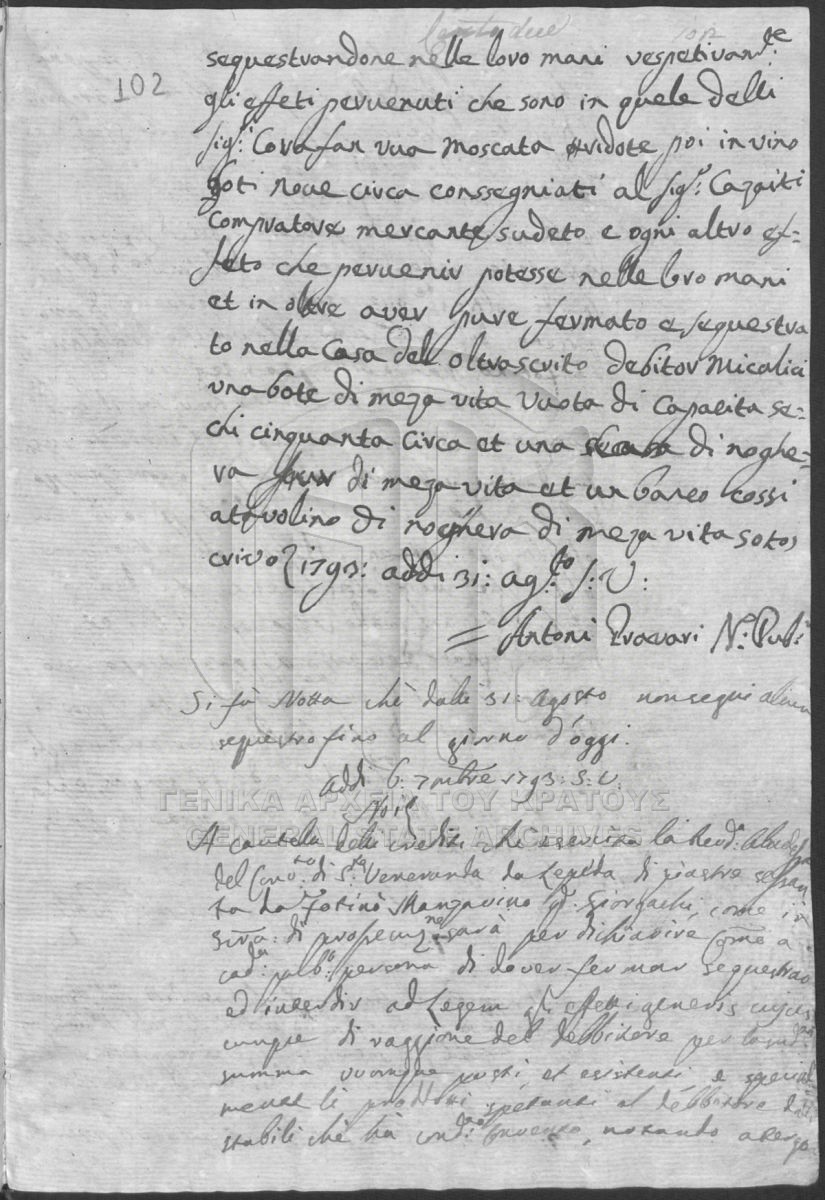 Cento due 102
102
sequestrandone nelle loro mani respetivam.te
gli effeti pervenuti che sono in quele delli
sig.ri Corafan vua moscata ridote poi in vino
goti nove circa conssegniati al sig.r Capaiti
compratore mercante sudeto e ogni altro ef=
feto che pervenir potesse nelle loro mani
et in oltre aver pure fermato e sequestra
to nella Casa del oltrascrito debitor Micalici
una bote di meza vita vuota di capacita se=
chi cinquanta circa et una di noghe=
ra di meza vita et un banco cossi
atavolino di noghera di meza vita sotos
crivo 1793: addi 31: ag.sto S: V:
= Antoni Pravari N.o Pub.o
Si fà Notta chè dalli 31: Agosto non seguì alcun
sequestro fino al giorno d'oggi.
addi 6: 7mbre 1793: S. V.
Noi
A cautela delli crediti che esercita la Rev.da
del Con.to di S.ta Veneranda da Lepeda di piastre sessan
ta da Fotinò Manzavino q.m Giorgachi, come in
sarà per dichiarire, come a
cad.a pub.a persona di dover fermar sequestrar
ed interdir ad Legem gli effetti generis cujus
cunque di raggione del debbitore per la sud.a
summa ovunque posti, et esistenti, e special
mente li prodotti spetanti al debbitore dalli
stabili chè hà cond. , notando a tergo